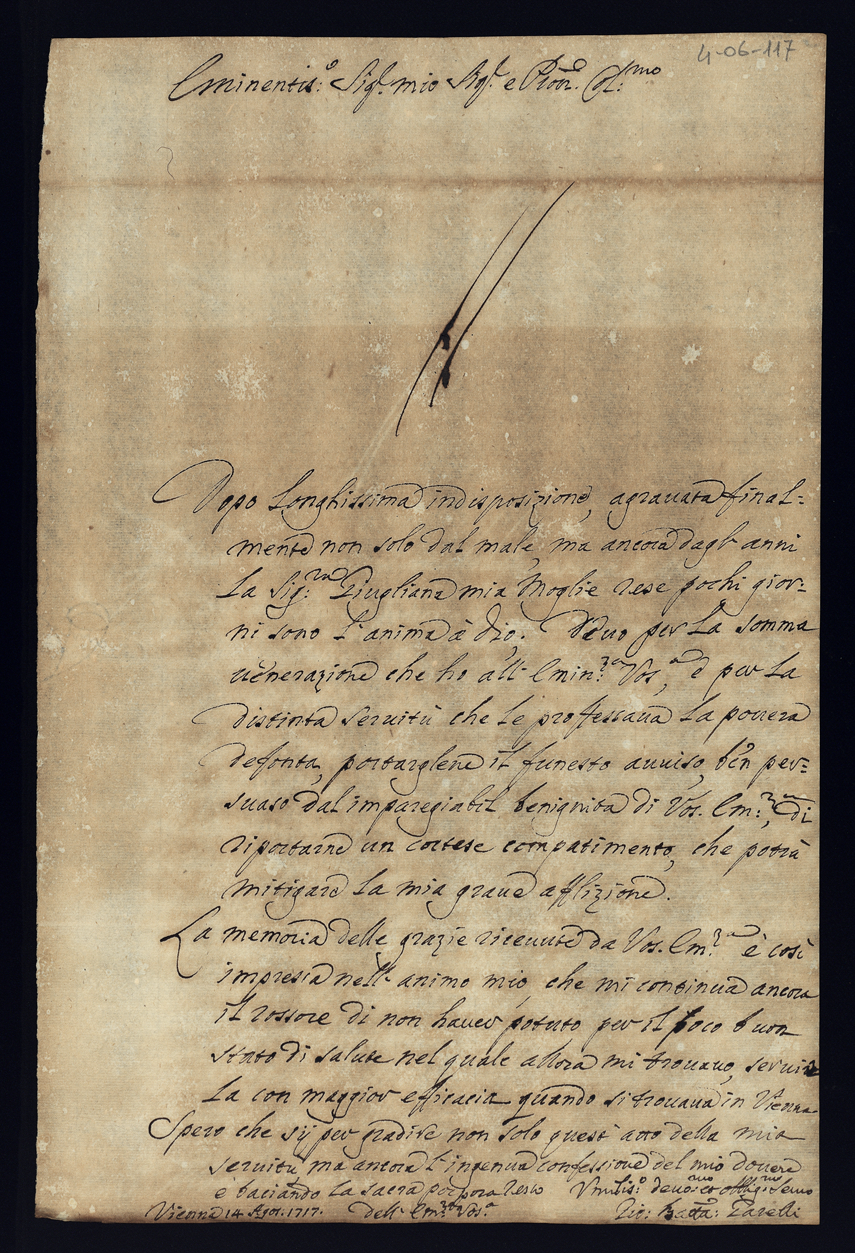 4-06-117
Eminentis:º Sig.r mio Sig.r e Pron. Col:mo
Dopo Longhissima indisposizione, agrauata final=
mente non solo dal male, ma ancora dagl' anni
La Sig:ra Giugliana mia Moglie rese pochi gior=
ni sono l'anima à Dio. Deuo per La somma
uenerazione che ho all' Emin:za Vos,a e per La
distinta seruitù che Le proffessaua La pouera
defonta, portarglene il funesto auuiso, ben per=
suaso dal impareggiabil benignita di Vos. Em:za, di
riportarne un cortese compatimento, che potrà
mitigare La mia graue afflizione.
La memoria delle grazie riceuute da Vos. Em:za è così
impressa nell' animo mio, che mi continua ancora
il rossore di non hauer potuto per il poco buon
stato di salute nel quale allora mi trouauo, seruir
La con maggior efficacia quando si trouaua in Vienna
Spero che sij per gradire non solo quest' atto della mia
seruitu ma ancora l'ingenua confessione del mio douere
e baciando La sacra porpora resto Vmilis:º deuo:mo et obblig:mo Seruo
Vienna 14 Agos. 1717. dell' Em:za Vos.a Gio: Batta: